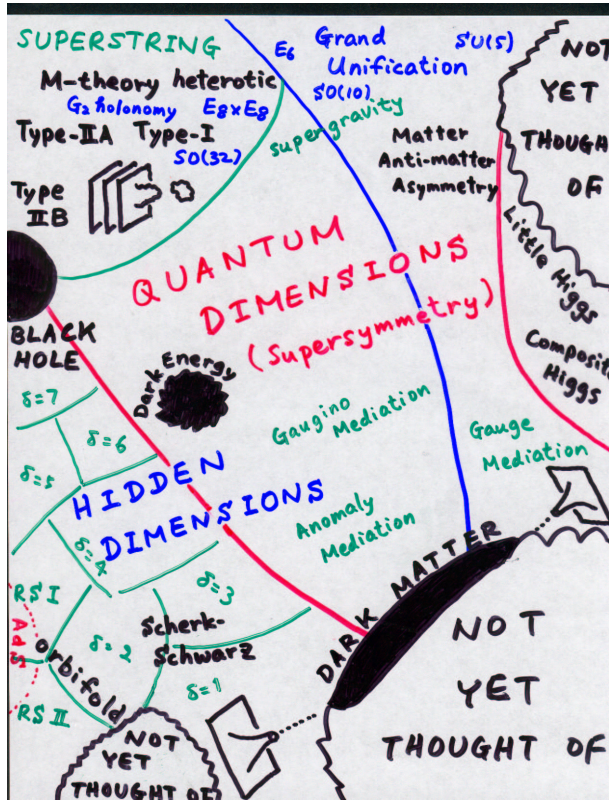 SUPERSTRING
M-theory heterotic
G2 holonomy E8×E8
Type-IIA Type-I
SO(32)
Type
IIB
E6
Grand
Unification
SU(5)
SO(10)
supergravity
Matter
Anti-matter
Asymmetry
NOT
YET
THOUGH
OF
Little Higgs
Composit
Higgs
QUANTUM
DIMENSIONS
(Supersymmetry)
BLACK
HOLE
Dark Energy
Gaugino
Mediation
Gauge
Mediation
Anomaly
Mediation
δ=7
δ=6
δ=5
HIDDEN
DIMENSIONS
δ=4
δ=3
RS I
AdS
orbifold
δ=2
Scherk-
Schwarz
δ=1
RS II
DARK MATTER
NOT
YET
THOUGHT OF
NOT
YET
THOUGHT OF